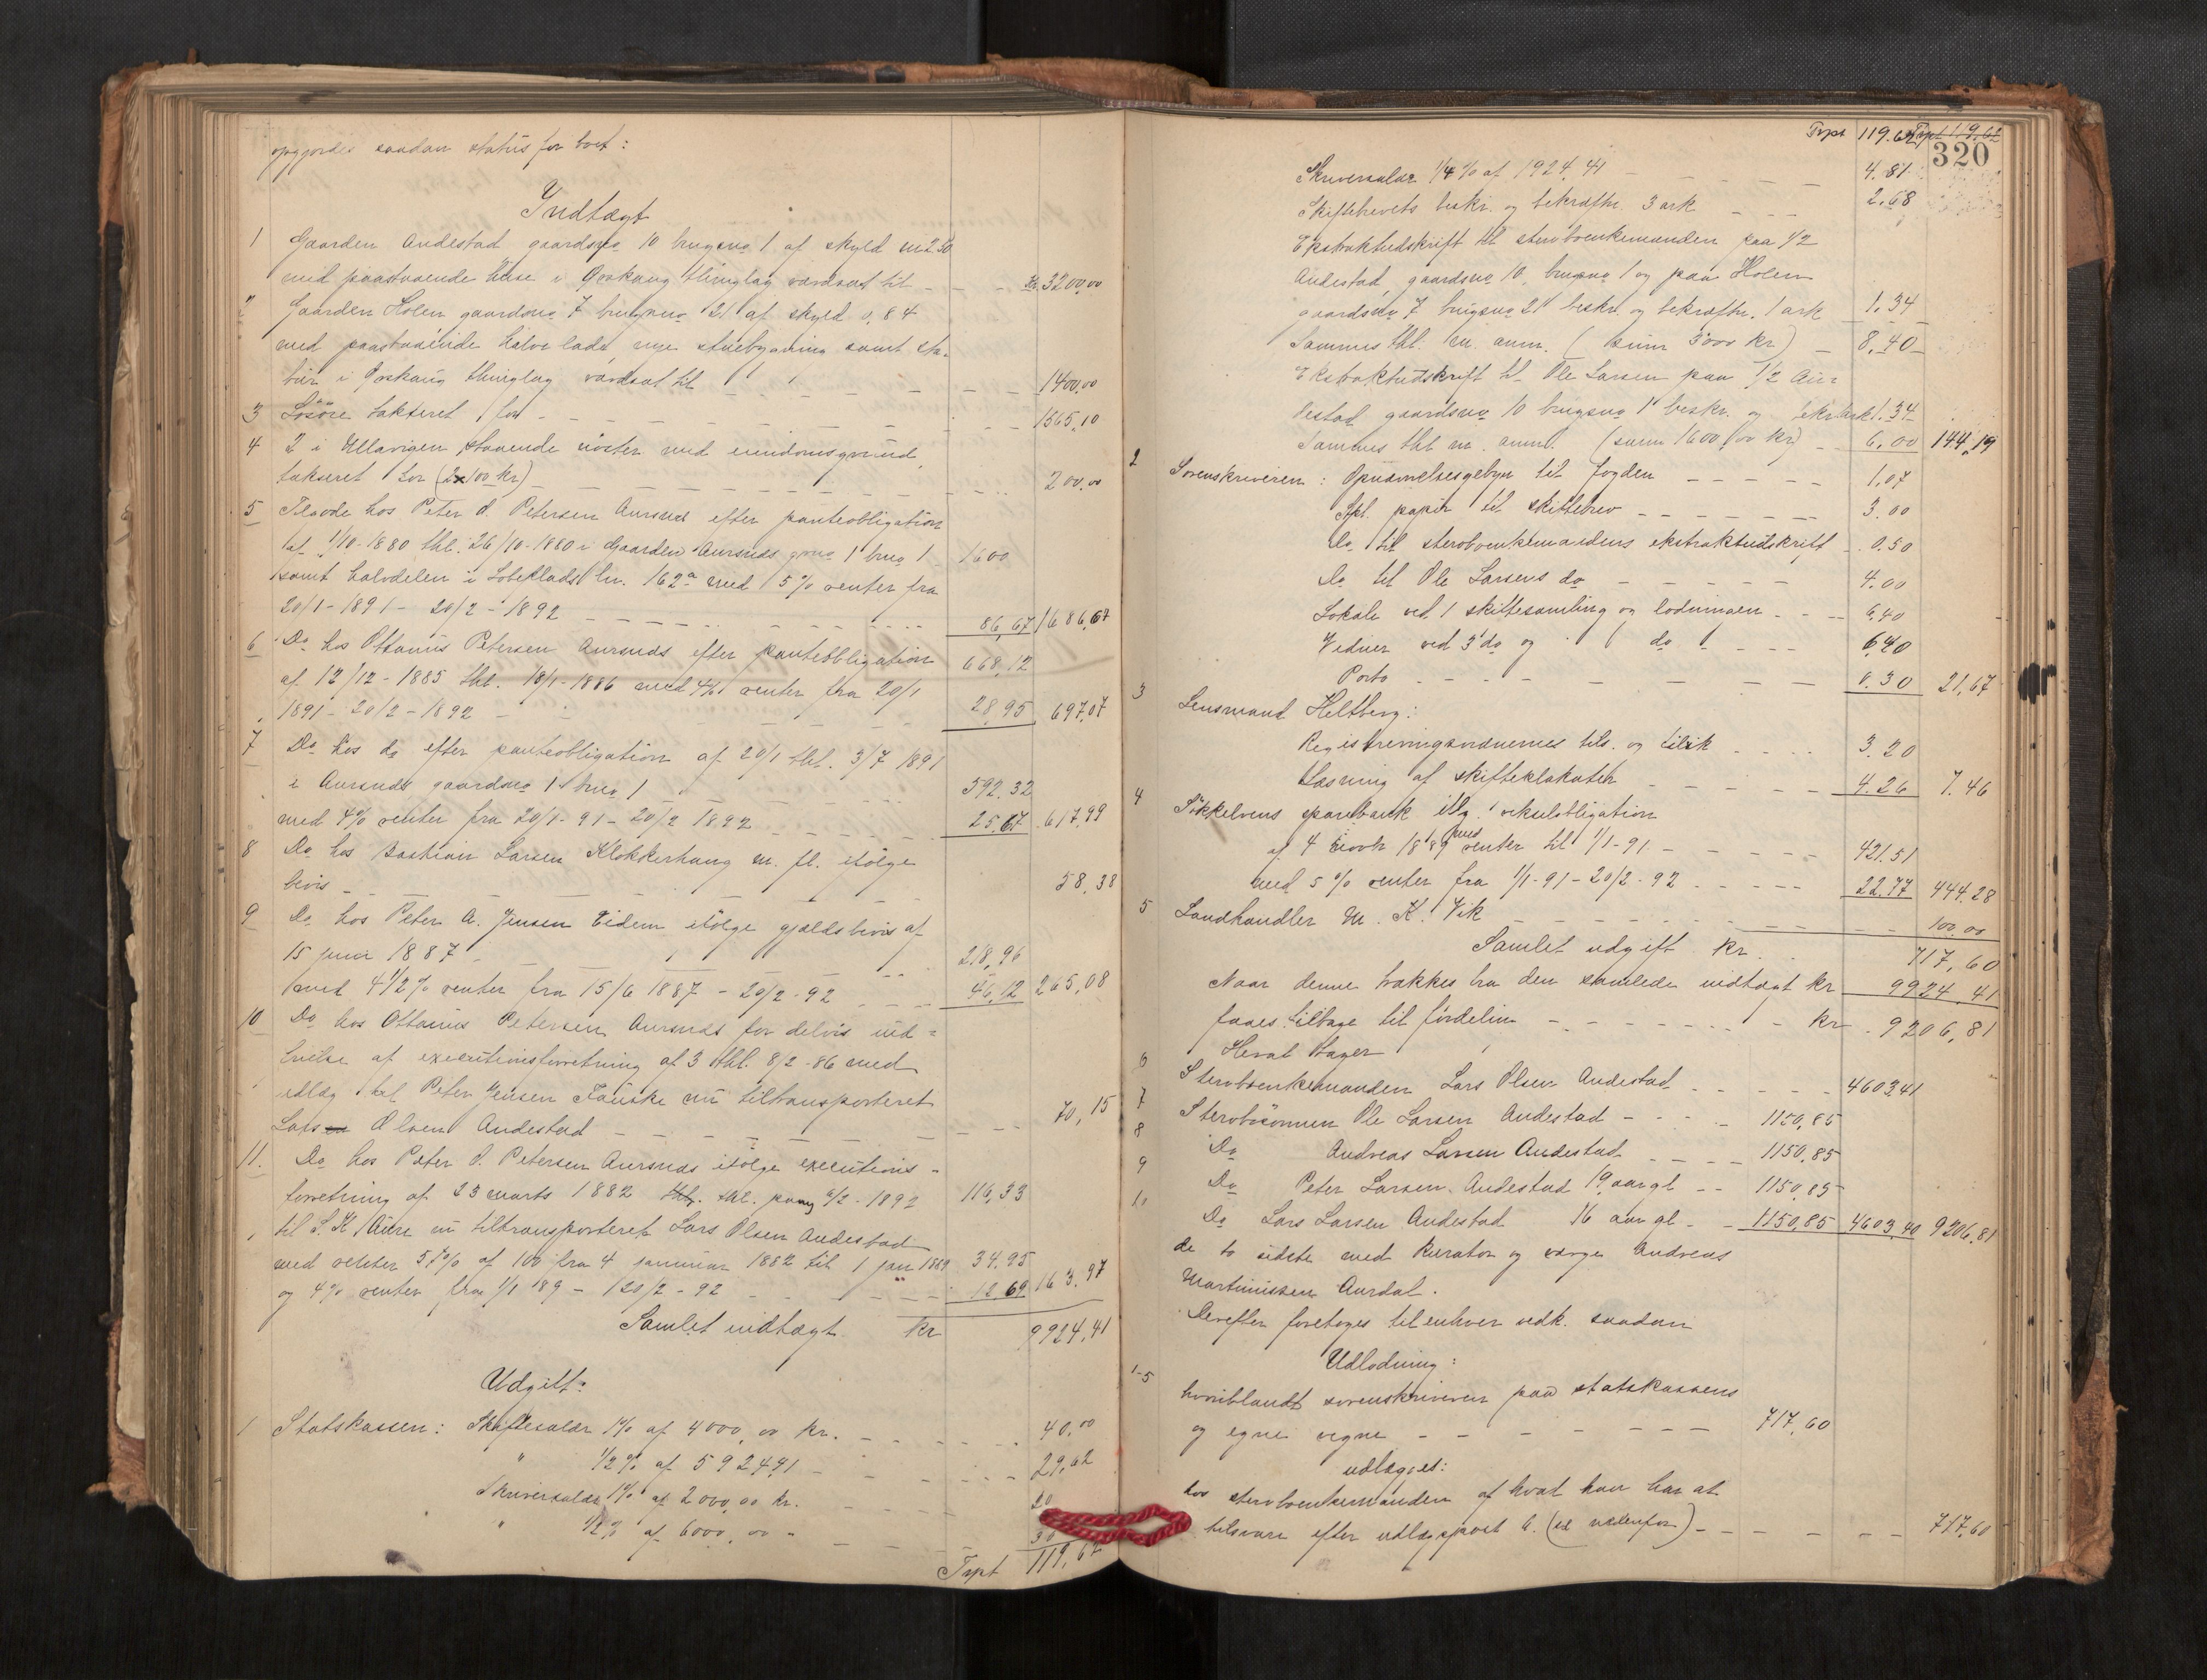 opgjordes saadan status for boet:
Indtægt
1 Gaarden Andestad gaardsno 10 brugsno 1 af skyld m 2.30
med paastaaende huse i Ørskoug thinglag værdsat til - - - kr. 3200,00
2 Gaarden Holen gaardsno 7 brugsno 21 af skyld 0,84
med paastaaende halve lade, nye stuebygning samt sta-
bur i Ørskoug thinglag værdsat til - - - 1400,00
3 Løsøre takseret for - - - 1565,10
4 2 i Ullavigen staaende nøster med eiendomsgrund,
takseret for (2x100 kr) - - - 200,00
5 Tilgode hos Peter O. Petersen Aursnes efter panteobligation
af 1/10-1880 thl. 26/10-1880 i Gaarden Aursnes gno 1 brno 1 1600
samt halvdelen i lno. 162a med 5% renter fra
20/1-1891 - 20/2-1892 - - - 86,67 1686,67
6 Do hos Ottanius Petersen Aursnes efter panteobligation 668,12
af 12/12-1885 thl. 18/1-1886 med 4% renter fra 20/1
1891 - 20/2-1892 - - - 28,95 697,07
7 Do hos do efter panteobligation af 20/1 thl. 3/7 1891
i Aursnes gaardsno 1 brno 1 - - - 592,32
med 4% renter fra 20/1-91 - 20/2 1892 - - - 25,67 617,99
8 Do hos Bastian Larsen Klokkerhaug m. fl. ifølge
bevis - - - 58,38
9 Do hos Peter A. Jensen Eidem ifølge gjældsbevis af
15 juni 1887 - - - 218,96
med 4 1/2% renter fra 15/6 1887 - 20/2-92 - - - 46,12 265,08
10 Do hos Ottanius Petersen Aursnes for delvis ind-
frielse af executionsforretning af 3 thl. 8/2-86 med
udlæg til Peter Jensen Fauske nu tiltransporteret
Lars Olsen Andestad - - - 70,15
11. Do hos Peter O. Petersen Aursnes ifølge executions-
forretning af 23 marts 1882 thl. thl. paany 6/2-1892 116,33
til S. K. Aure nu tiltransporteret Lars Olsen Andestad
med renter 5% af 100 fra 4 januar 1882 til 1 jan 1889 34,95
og 4% renter fra 1/1 189 - 20/2-92 - - - 12,69 163,97
Samlet indtægt kr 9924,41
Udgift:
1 Statskassen: Skiftesalær 1% af 4000,00 kr. - - - 40,00
" 1/2% af 5924,91 - - - 29,62
Skriversalær 1% af 2000,00 kr. - - - 20
" 1/2% af 6000,00 - - - - 30
Trpt 119,62
Trpt 119.62 Trpt 119,62
320
Skriversalær 1/4% af 1924,41 - - - 4.81
Skiftebrevets beskr. og bekræftn. 3 ark - - - 2.68
Ekstraktudskrift til sterboenkemanden paa 1/2
Andestad, gaardsno 10, brugsno 1 og paa Holen
gaardsno 7 brugsno 21 beskr. og bekræftn. 1 ark 1.34
Sammes thl. m. anm. (sum 3000 kr) - 8,40
Ekstraktudskrift til Ole Larsen paa 1/2 An-
destad gaardsno 10 brugsno 1 beskr. og bekr 1 ark 1.34
Sammes thl m. anm. (sum 1600,00 kr) - 6,00 144,19
2 Sorenskriveren: Opnævnelsesgebyr til fogden - - - 1,07
Stpl. papir til skiftebrev - - - 3.00
Do til sterboenkemandens ekstraktudskrift - 0,50
Do til Ole Larsens do - - - 4.00
Lokale ved 1 skiftesamling og lodningen - - - 6,40
Vidner ved 3 do og 1 do - - - 6,40
Porto - - - 0.30 21,67
3 Lensmand Heltberg:
Registreringsvidnernes tils. og tilsik - - - 3.20
Læsning af skifteplakater - - - 4.26 7.46
4 Søkkelvens sparebank iflg. vekselobligation
af 4 1889 med renter til 1/1-91 - - - 421.51
med 5% renter fra 1/1-91 - 20/2-92 - - - 22,77 444,28
5 Landhandler M. K. Vik - - - 100,00
Samlet udgift kr. 717,60
Naar denne trækkes fra den samlede indtægt kr 9924,41
faaes tilbage til fordeling - - - kr. 9206,81
Heraf tager
6 Sterboenkemanden Lars Olsen Andestad - - - 4603,41
7 Sterbosønnen Ole Larsen Andestad - - - 1150,85
8 Do Andreas Larsen Andestad - - - 1150,85
9 Do Peter Larsen Andestad 19 aar gl - - 1150,85
10 Do Lars Larsen Andestad 16 aar gl - - 1150,85 4603,40 9206,81
de to sidste med kurator og værge Andreas
Martinussen Aurdal.
Derefter foretoges til enhver vedk. saadan
Udlodning:
1-5 hvoriblandt sorenskriveren paa statskassens
og egne vegne - - - 717,60
udlægges:
hos sterboenkemanden af hvad han har at
tilsvare efter udlægspost 6. (se nedenfor) - - - 717,60